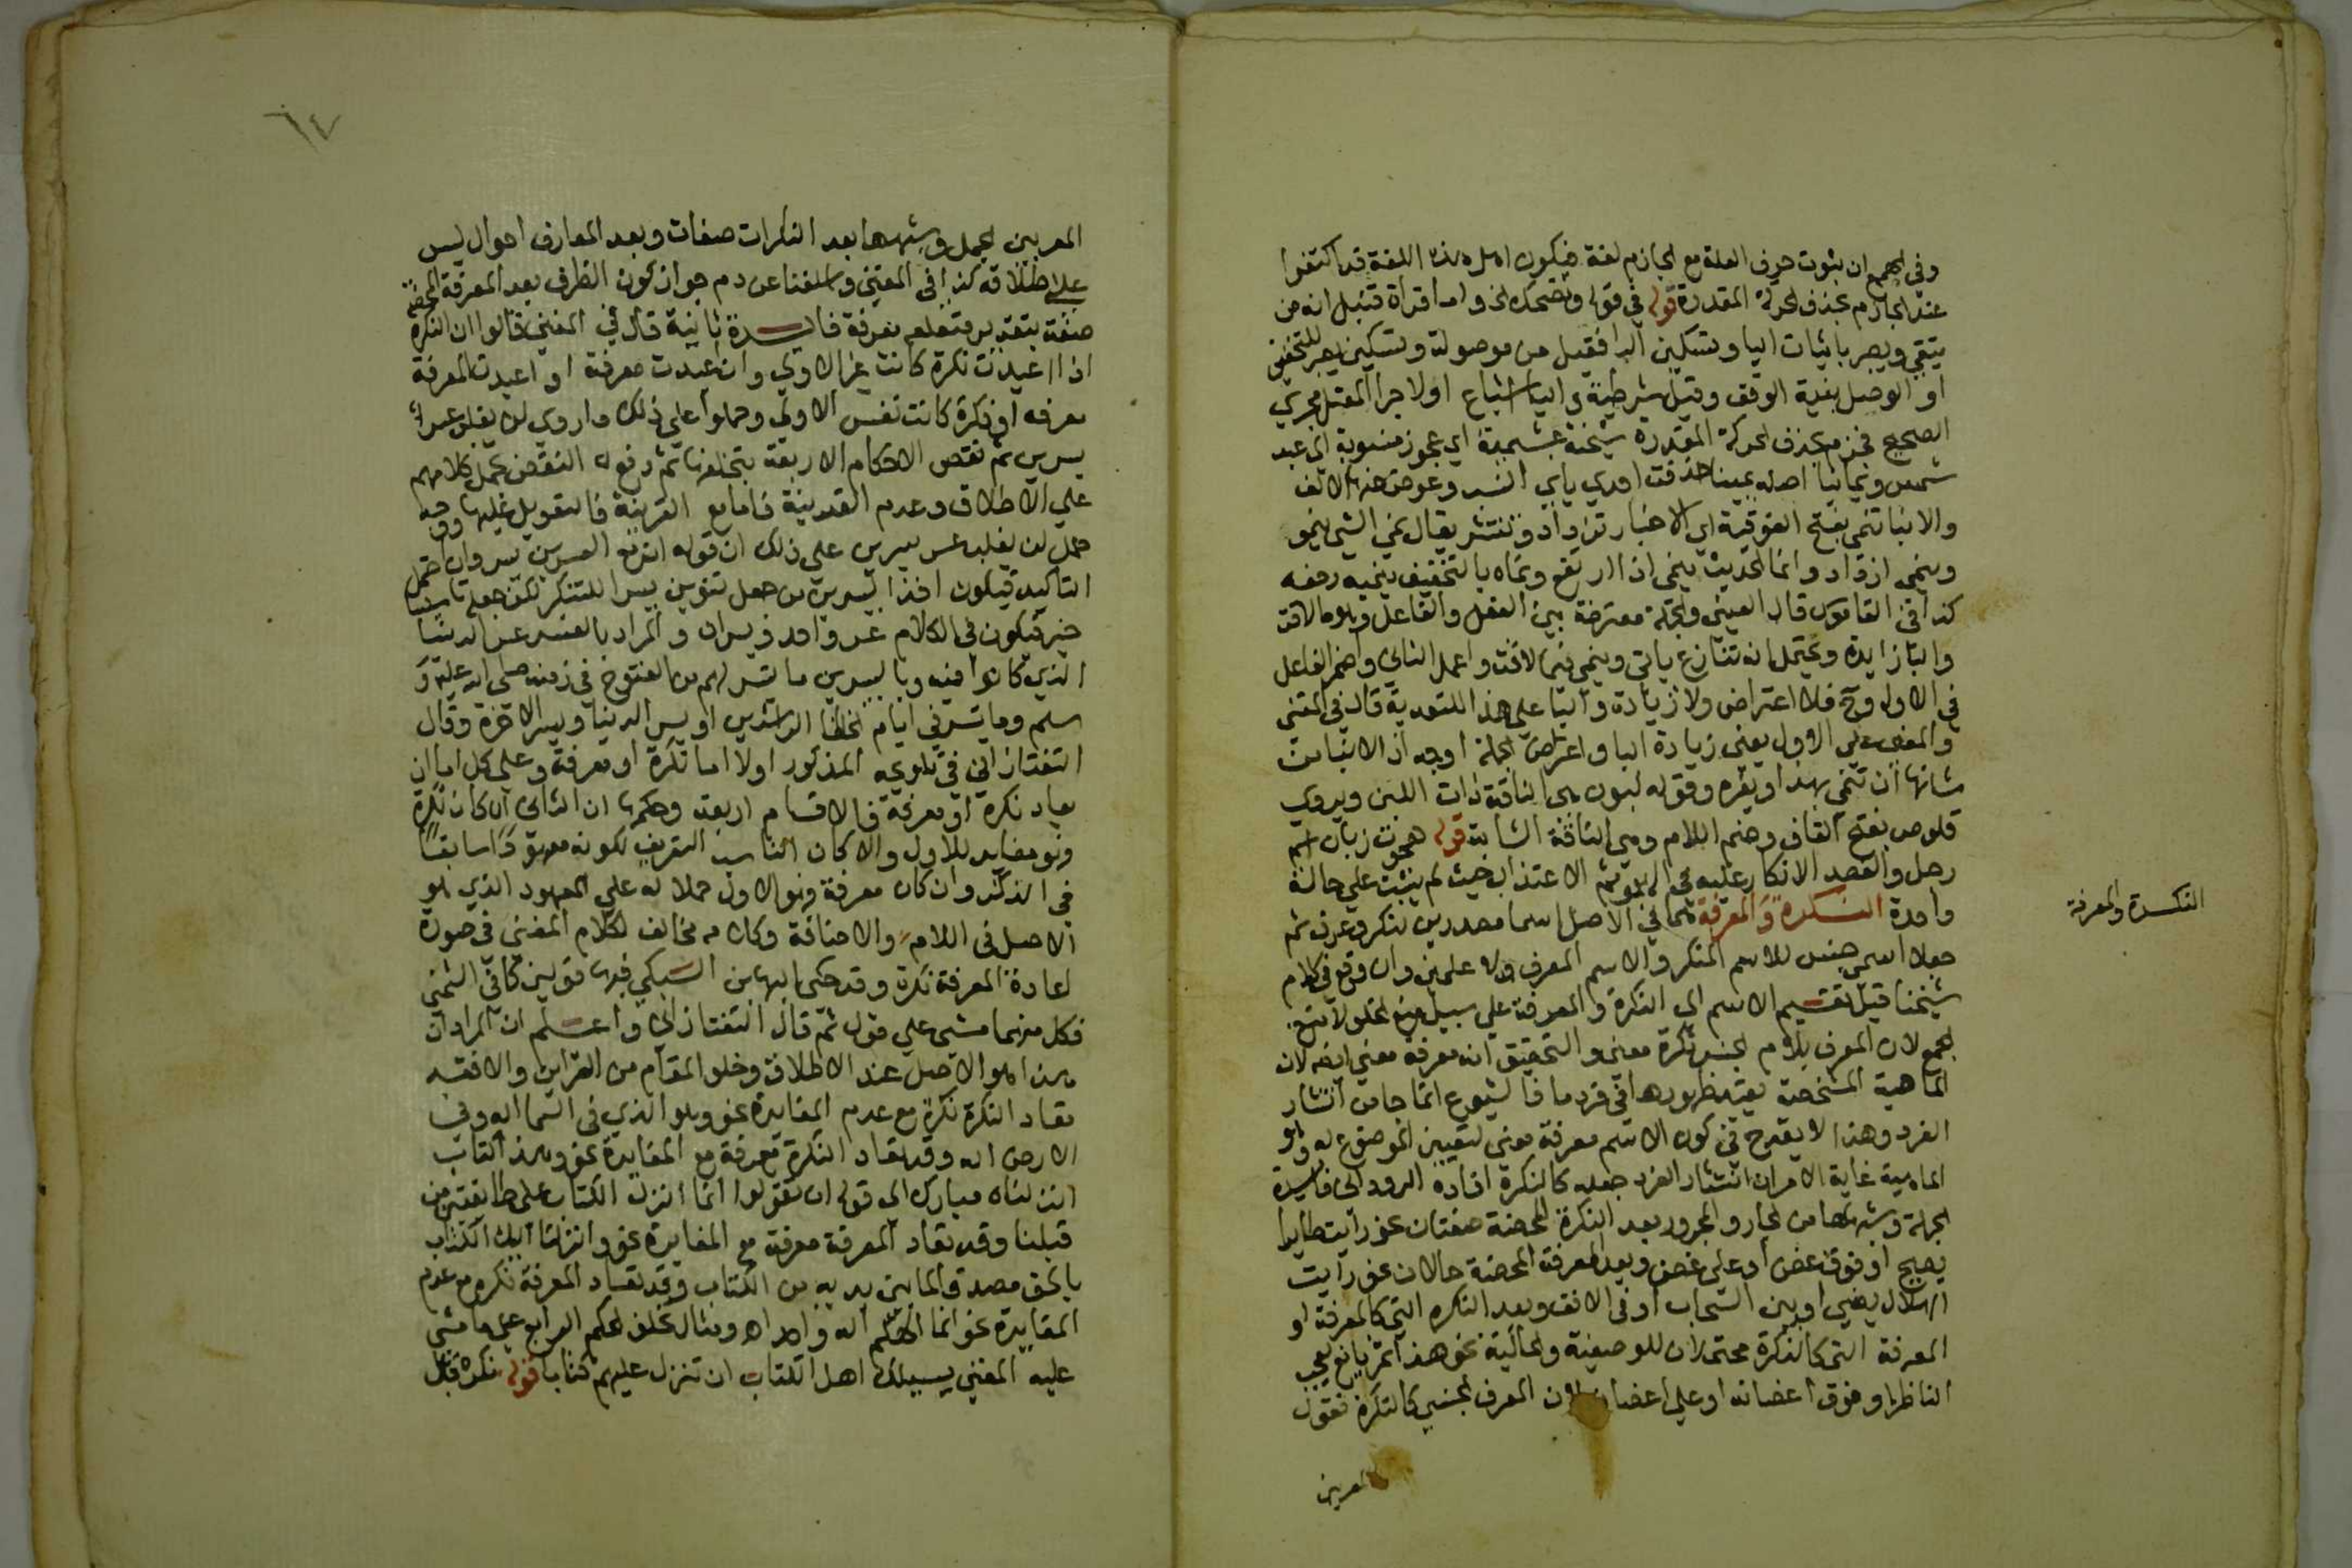 وفي الهمع ان ثبوت حرف العلة مع الجازم لغة فيكون اهل هذه اللغة قد اكتفوا
عند الجازم بحذف الحركة المقدرة قوله في قوله وتضحك الخ واما قراة قنبل انه من
يتقي ويصبر باثبات اليا وتسكين الرا فقيل من موصولة وتسكين يصبر للتخفيف
او الوصل بنية الوقف وقيل شرطية واليا اشباع اولاجرا المعتل مجري
الصحيح فجزم بحذف الحركة المقدرة شيخة عبشمية اي عجوز منسوبة الي عبد
شمس ويمانيا اصله يمنيا حذفت احدي ياي النسب وعوض عنها الالف
والانبا تنمي بفتح الفوقية اي الاخبار تزداد وتنتشر يقال نمي الشي ينمو
وينمي ازداد وانما الحديث ينمي اذا ارتفع ونماه بالتخفيف ينميه رفعه
كذا في القاموس قال العيني والجملة معترضة بين الفعل والفاعل وهو ما لاقت
والبا زايدة ويحتمل انه تنازع ياتي وينمي في ما لاقت واعمل الثاني واضمر الفاعل
في الاول وح فلا اعتراض ولا زيادة والبا علي هذا للتعدية قال في المغني
والمعني علي الاول يعني زيادة البا واعتراض الجملة اوجه اذ الانبا من
شانها ان تنمي بهذا وبغيره وقوله لبون هي الناقة ذات اللبن ويروي
قلوص بفتح القاف وضم اللام وهي الناقة الشابة قوله هجوت زبان اسم
رجل والقصد الانكار عليه في الهجو ثم الاعتذار حيث لم يثبت علي حالة
واحدة النكرة والمعرفة هما في الاصل اسما مصدرين لنكر وعرف ثم
جعلا اسمي جنس للاسم المنكر والاسم المعرف لا علمين وان وقع في كلام
شيخنا قيل تقسيم الاسم الي النكرة والمعرفة علي سبيل منع الخلو لا منع
الجمع لان المعرف بلام الجنس نكرة معني والتحقيق انه معرفة معني ايضا لان
الماهية المشخصة يعتبر ظهورها في فرد ما فالشيوع انما جا من انتشار
الفرد وهذا لا يقدح في كون الاسم معرفة معني لتعيين الموضوع له وهو
الماهية غاية الامر ان انتشار الفرد جعله كالنكرة افاده الروداني فايدة
الجملة وشبهها من الجار والمجرور بعد النكرة المحضة صفتان نحو رايت طايرا
يصيح او فوق غصن او علي غصن وبعد المعرفة المحضة حالان نحو رايت
الهلال يضي او بين السحاب او في الافق وبعد النكره التي كالمعرفة او
المعرفة التي كالنكرة محتملان للوصفية والحالية نحو هذا ثمر يانع يعجب
الناظر او فوق اغصانه او علي اغصانه لان المعرف الجنسي كالنكرة فقول
المعربين
النكرة والمعرفة
٦٧
المعربين الجمل وشبهها بعد النكرات صفات وبعد المعارف احوال ليس
علي اطلاقه كذا في المغني واسلفنا عن دم جواز كون الظرف بعد المعرفة المحضة
صفة بتقدير متعلقه معرفة فايدة ثانية قال في المغني قالوا ان النكرة
اذا اعيدت نكرة كانت غير الاولي وان اعيدت معرفة او اعيدت المعرفة
معرفه او نكرة كانت نفس الاولي وحملوا علي ذلك ما روي لن يغلب عسر
يسرين ثم نقض الاحكام الاربعة بتخلفها ثم دفع النقض بحمل كلامهم
علي الاطلاق وعدم القرينة فاما مع القرينة فالتعويل عليها ووجه
حمل لن يغلب عسر يسرين علي ذلك ان قوله ان مع العسر يسرا وان احتمل
التاكيد فيكون اخذ اليسرين من جعل تنوين يسرا للتنكير لكن جعله تاسيسا
خير فيكون في الكلام عسر واحد ويسران والمراد بالعسر عسر الدنيا
الذي كانوا فيه وباليسرين ما تيسر لهم من الفتوح في زمنه صلي الله عليه و
سلم وما تيسر في ايام الخلفا الراشدين او يسر الدنيا ويسر الاخرة وقال
التفتازاني في تلويحه المذكور اولا اما نكرة او معرفة وعلي كل اما ان
يعاد نكرة او معرفة فالاقسام اربعة وحكمها ان الثاني ان كان نكرة
فهو مغاير للاول والا كان المناسب التعريف لكونه معهودا سابقا
في الذكر وان كان معرفة فهو الاول حملا له علي المعهود الذي هو
الاصل في اللام والاضافة وكلامه مخالف لكلام المغني في صورة
اعادة المعرفة نكرة وقد حكي البها بن السبكي فيها قولين كما في الشمني
فكل منهما مشي علي قول ثم قال التفتازاني واعلم ان المراد ان
هذا هو الاصل عند الاطلاق وخلو المقام من القراين والا فقد
تعاد النكرة نكرة مع عدم المغايرة نحو وهو الذي في السما اله وفي
الارض اله وقد تعاد النكرة معرفة مع المغايرة نحو وهذا كتاب
انزلناه مبارك الي قوله ان تقولوا انما انزل الكتاب علي طايفتين من
قبلنا وقد تعاد المعرفة معرفة مع المغايرة نحو وانزلنا اليك الكتاب
بالحق مصدقا لما بين يديه من الكتاب وقد تعاد المعرفة نكره مع عدم
المغايرة نحو انما الهكم اله واحد اه ومثال تخلف الحكم الرابع علي ما مشي
عليه المغني يسيلك اهل الكتاب ان تنزل عليهم كتابا قوله نكرة قابل